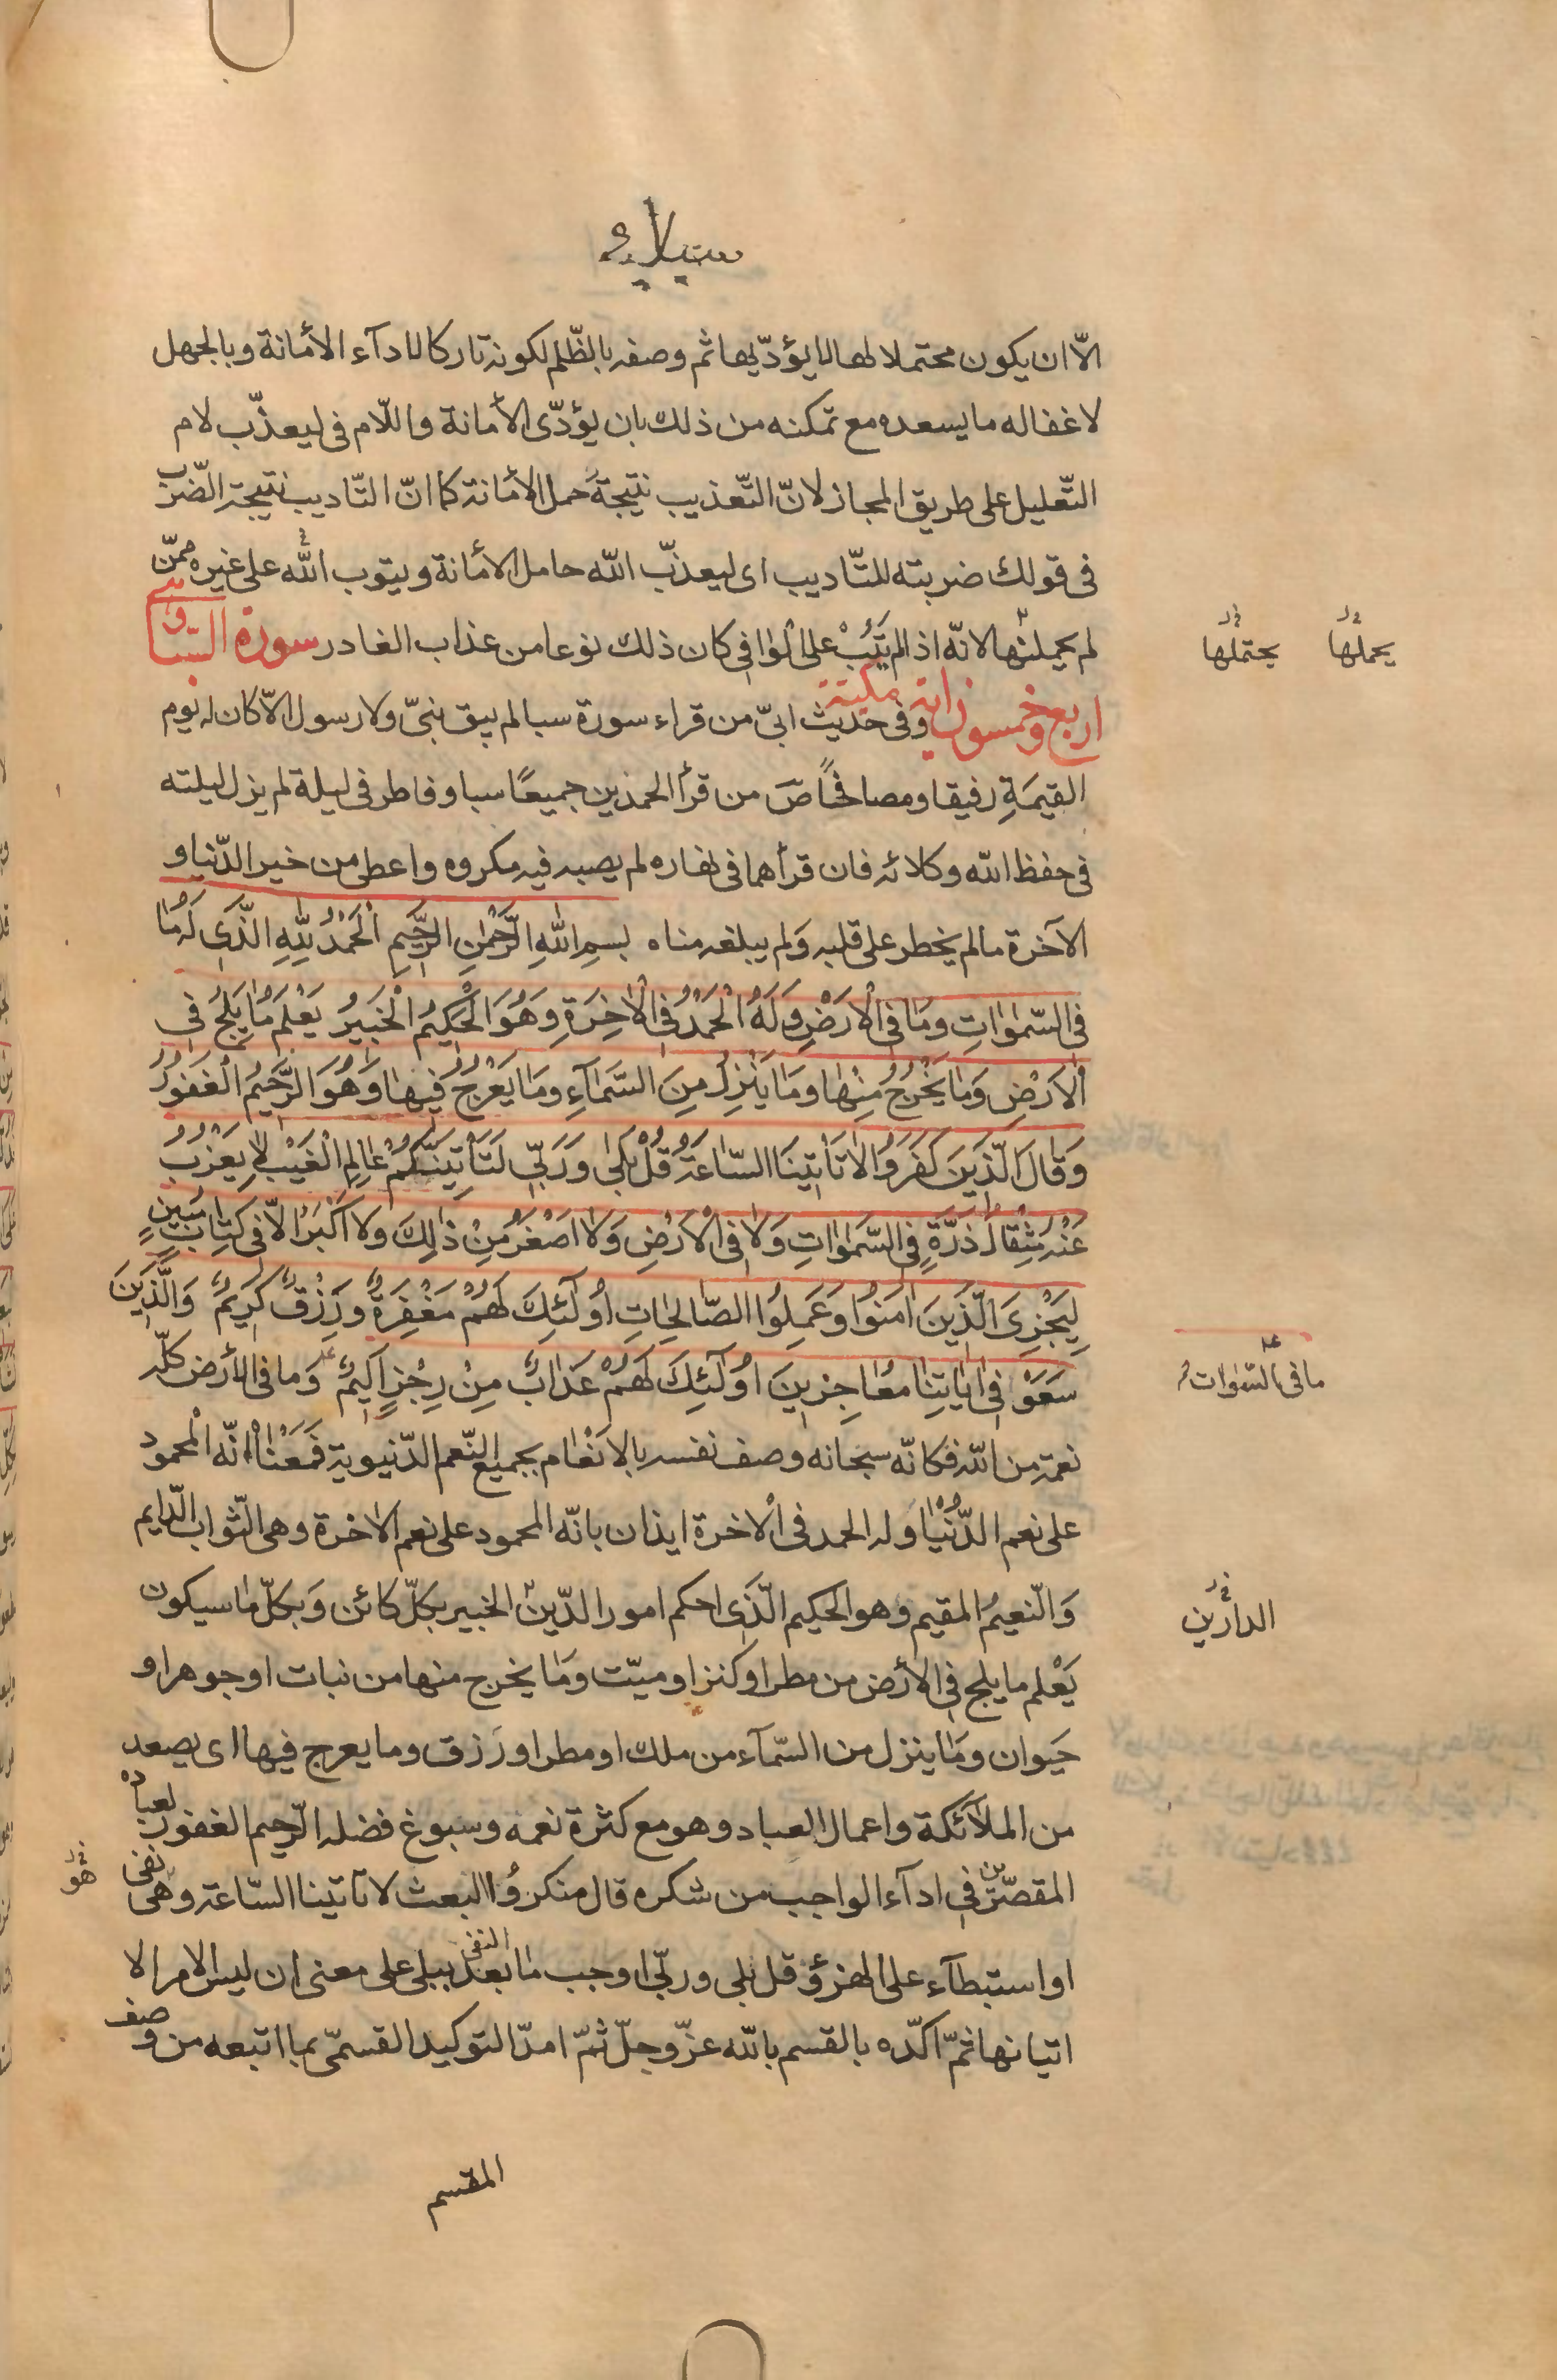 الّا ان يكون محتملا لها لا يؤدّيها ثم وصفه بالظّلم لكونه تاركا لادآء الأمانة وبالجهل
لاغفاله ما يسعده مع تمكنه من ذلك بان يؤدّى الأمانة واللّام فى ليعذّب لام
التّعليل على طريق المجاز لانّ التّعذيب نتيجة حمل الأمانة كما انّ التّاديب نتيجة الضّرب
فى قولك ضربته للتّاديب اى ليعذّب الله حامل الأمانة ويتوب الله على غيره ممّن
لم يحملنها لانّه اذا لم يَتُبْ على الوافى كان ذلك نوعا من عذاب الغادر سورة السبا
يحملها يحتملها
اربع وخمسون اية مكيّة وفى حديث ابىّ من قراء سورة سبا لم يبق نبىّ ولا رسول الّا كان له يوم
القيمَةِ رفيقا ومصافحًا صَ من قرأ الحمدين جميعًا سبا وفاطر فى ليلة لم يزل ليلته
فى حفظ الله وكلائه فان قرأهما فى نهاره لم يصبه فيه مكروه واعطى من خير الدّنيا و
الآخرة مالم يخطر على قلبه وَلم يبلغه مناه بسمِ اللهِ الرَّحْمٰنِ الرَّحِيمِ اَلْحَمْدُ لِلّٰهِ الَّذِى لَهُ مَا
فِى السَّمٰوٰاتِ وَمَا فِى الْاَرْضِ وَلَهُ الْحَمْدُ فِى الْاٰخِرَةِ وَهُوَ الْحَكِيمُ الْخَبِيرُ يَعْلَمُ مٰا يَلِجُ فِى
الْاَرْضِ وَمٰا يَخْرُجُ مِنْهٰا وَمٰا يَنْزِلُ مِنَ السَّمٰآءِ وَمٰا يَعْرُجُ فِيهٰا وَهُوَ الرَّحِيمُ الْغَفُورُ
وَقٰالَ الَّذِينَ كَفَرُوا لٰا تَأْتِينَا السّٰاعَةُ قُلْ بَلٰى وَرَبِّى لَتَأْتِيَنَّكُمْ عٰالِمِ الْغَيْبِ لٰا يَعْزُبُ
عَنْهُ مِثْقٰالُ ذَرَّةٍ فِى السَّمٰوٰاتِ وَلٰا فِى الْاَرْضِ وَلٰا اَصْغَرُ مِنْ ذٰلِكَ وَلٰا اَكْبَرُ اِلّٰا فِى كِتٰابٍ مُبِينٍ
لِيَجْزِىَ الَّذِينَ اٰمَنُوا وَعَمِلُوا الصّٰالِحٰاتِ اُولٰٓئِكَ لَهُمْ مَغْفِرَةٌ وَرِزْقٌ كَرِيمٌ وَالَّذِينَ
سَعَوْا فِى اٰيٰاتِنٰا مُعٰاجِزِينَ اُولٰٓئِكَ لَهُمْ عَذٰابٌ مِنْ رِجْزٍ اَلِيمٌ وَما فى الأرض كلّه
ما فى السّمٰوات و
نعمة من الله فكانّه سبحانه وصف نفسه بالاَنْعٰام بجميع النّعم الدّنيوية فَمَعْنٰاه انّه المحمود
على نعم الدُّنْيٰا وَله الحمد فى الْاخرة ايذان بانّه المحمود على نعم الاخرة وهى الثّواب الدّايم
وَالنّعيمُ المقيم وهو الحكيم الَّذى احكم امور الدّين الخبير بكلّ كائن وَبكلّ ما سيكون
الدارين
يَعْلم ما يلج فى الأرض من مطر او كنز او ميّت وَمٰا يخرج منها من نبات او جوهر او
حَيوان وَمٰا ينزل من السّمآء من ملك او مطر او رَزق وما يعرج فيها اى يصعد
من الملآئكة واعمال العباد وهو مع كثرة نعمه وسبوغ فضله الرّحيم الغفور لعباده
المقصّرين فى ادآء الواجب من شكره قال منكروُا البعث لا تآتينا السّاعة وهى نفى
هو
او استبطآء على الهزؤ قل بلى وربّى اوجب مٰا بعد النفى ببلى على معنى ان ليس الامر الا
اتيانها ثمّ اكّده بالقسم بالله عزّوجلّ ثمّ امدّ التوكيد القسمّى بما اتبعه من وصف
المقسم